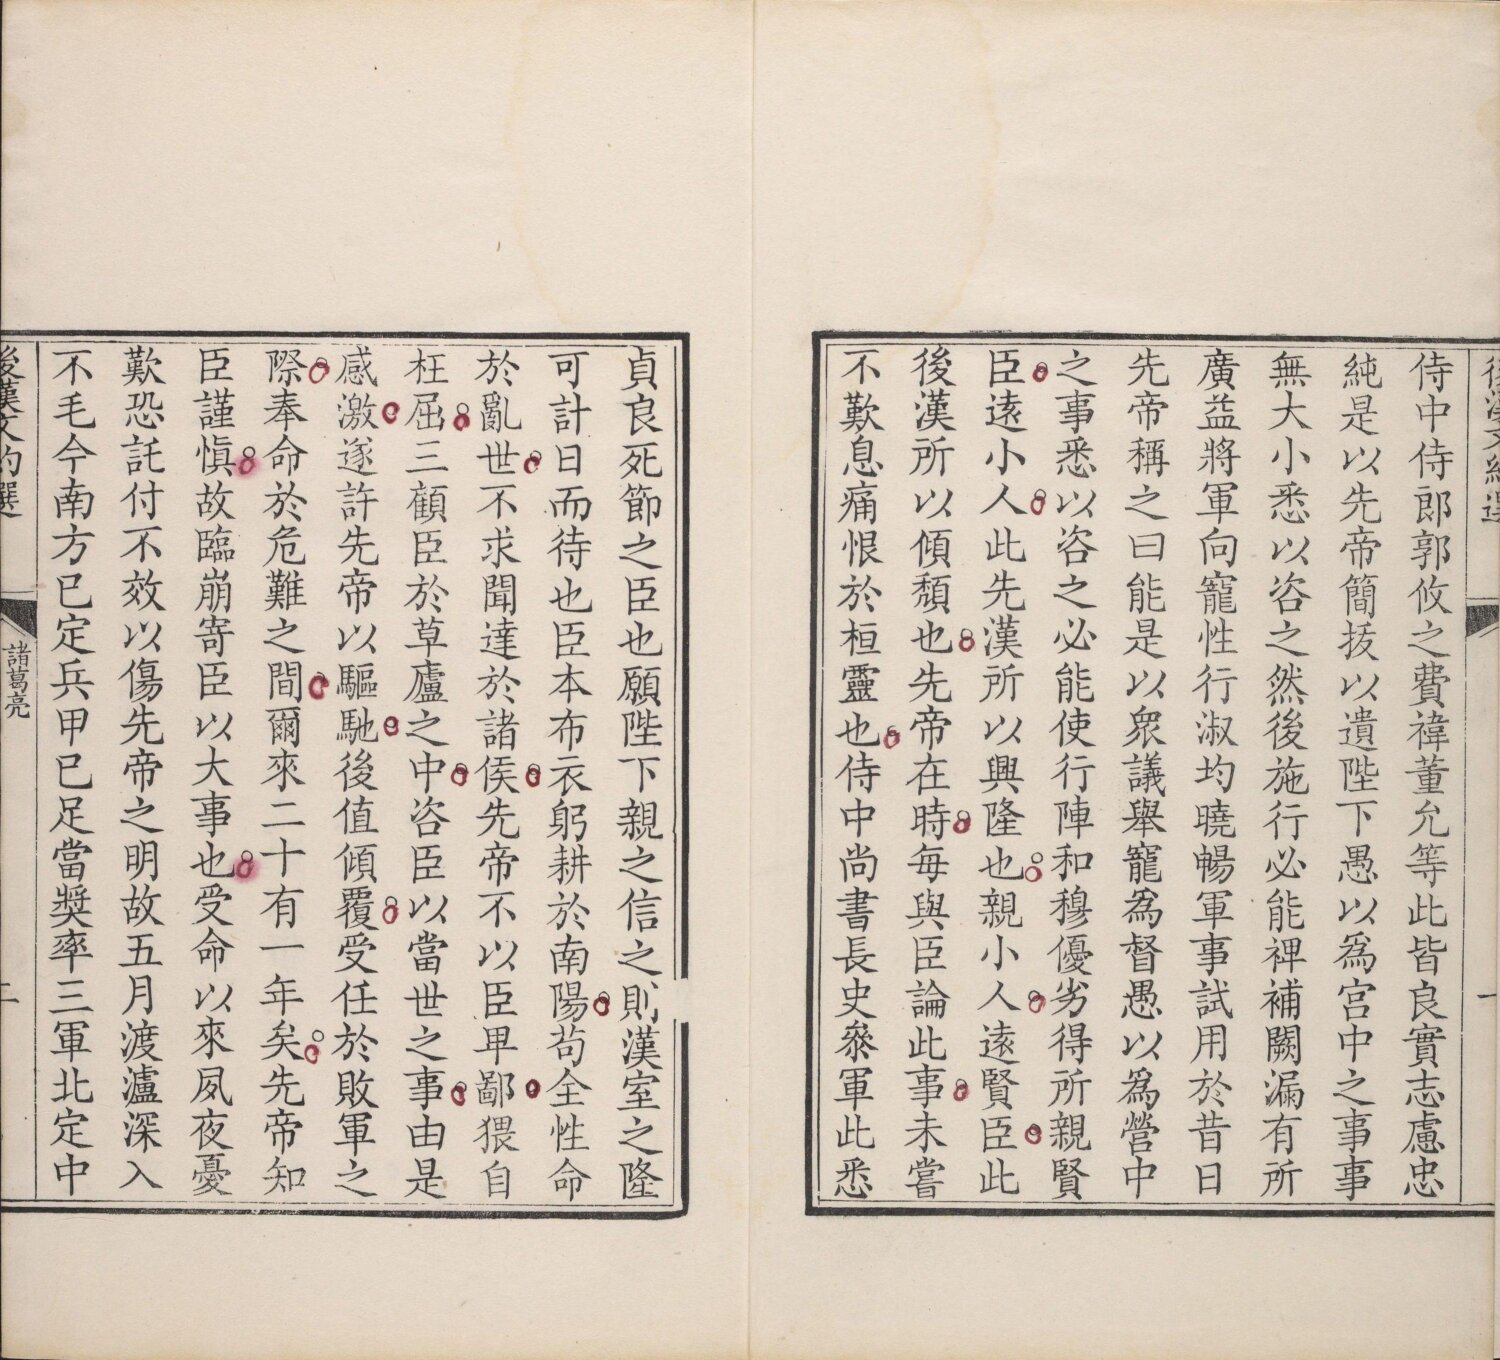 侍中侍郎郭攸之費禕董允等此皆良實志慮忠
純是以先帝簡拔以遺陛下愚以爲宮中之事事
無大小悉以咨之然後施行必能裨補闕漏有所
廣益將軍向寵性行淑均曉暢軍事試用於昔日
先帝稱之曰能是以衆議舉寵爲督愚以爲營中
之事悉以咨之必能使行陣和穆優劣得所親賢
臣遠小人此先漢所以興隆也親小人遠賢臣此
後漢所以傾頹也先帝在時每與臣論此事未嘗
不歎息痛恨於桓靈也侍中尚書長史參軍此悉
貞良死節之臣也願陛下親之信之則漢室之隆
可計日而待也臣本布衣躬耕於南陽苟全性命
於亂世不求聞達於諸侯先帝不以臣卑鄙猥自
枉屈三顧臣於草廬之中咨臣以當世之事由是
感激遂許先帝以驅馳後值傾覆受任於敗軍之
際奉命於危難之間爾來二十有一年矣先帝知
臣謹愼故臨崩寄臣以大事也受命以來夙夜憂
歎恐託付不效以傷先帝之明故五月渡瀘深入
不毛今南方已定兵甲已足當獎率三軍北定中
後漢文約選
諸葛亮
二